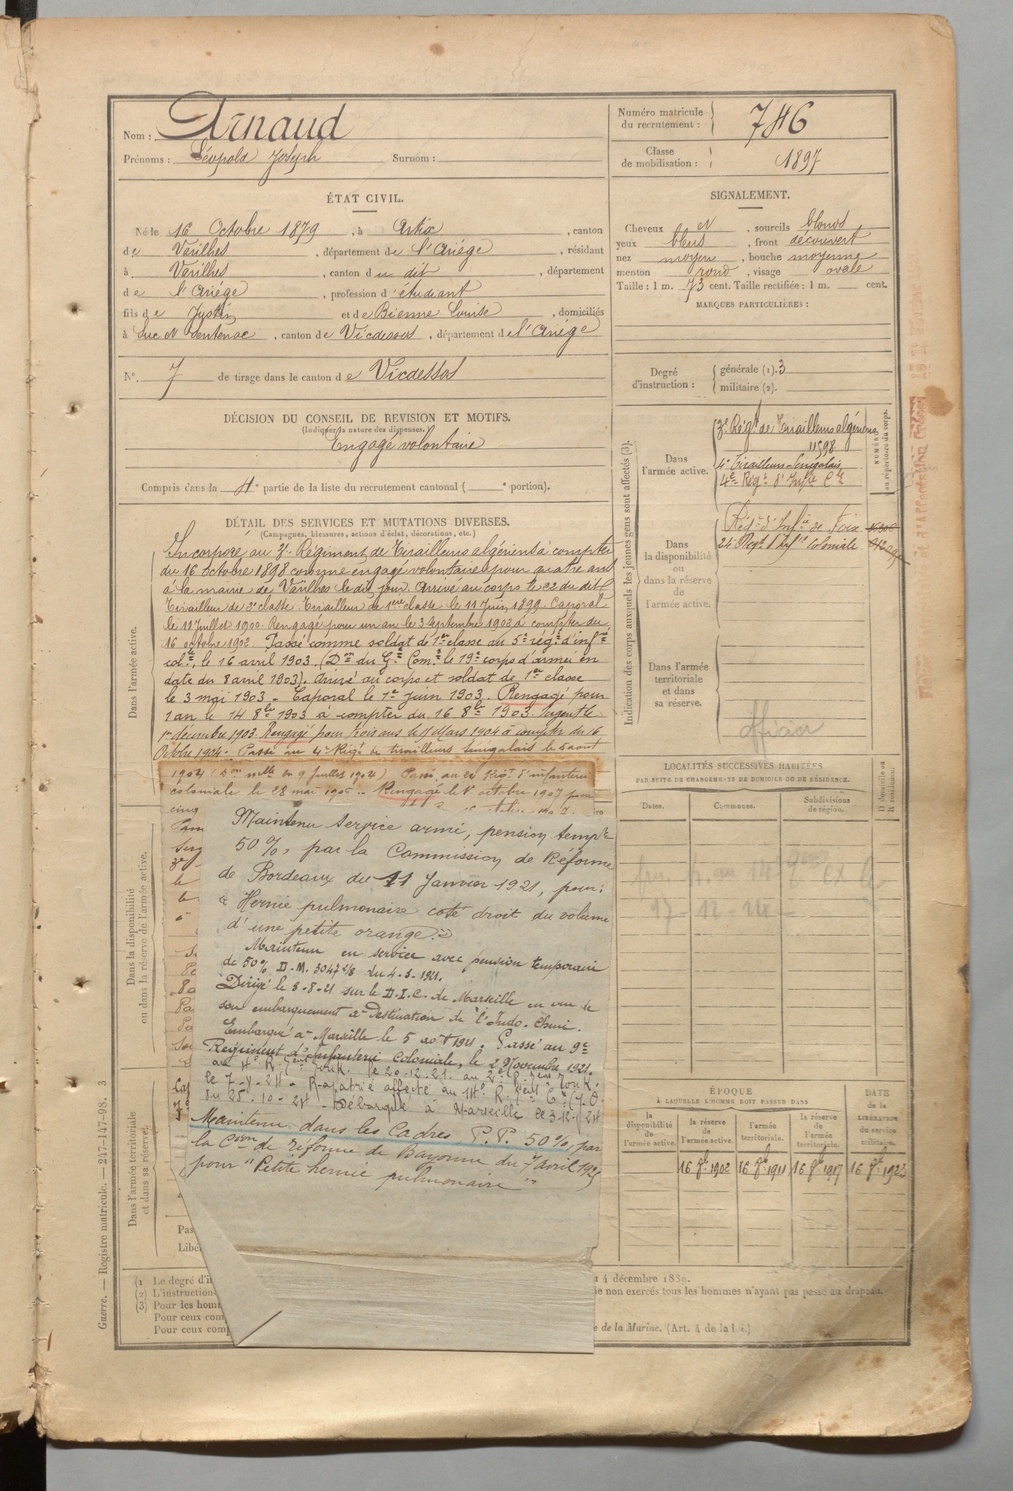 Nom : Arnaud
Prénoms : Léopold Joseph Surnom :
Numéro matricule du recrutement : 746
Classe de mobilisation : 1897
ÉTAT CIVIL.
Né le 16 Octobre 1879, à Artix, canton
de Varilhes, département de l'Ariége, résidant
à Varilhes, canton du dit, département
de l'Ariége, profession d'étudiant
fils de Justin et de Bienne Louise, domiciliés
à Suc et Sentenac, canton de Vicdessos, département de l'Ariége
N° 7 de tirage dans le canton de Vicdessos
SIGNALEMENT.
Cheveux et, sourcils blonds
yeux bleus, front découvert
nez moyen, bouche moyenne
menton rond, visage ovale
Taille : 1 m. 73 cent. Taille rectifiée : 1 m. cent.
MARQUES PARTICULIÈRES :
Degré d'instruction : générale (1). 3
militaire (2).
DÉCISION DU CONSEIL DE REVISION ET MOTIFS.
(Indiquer la nature des dispenses.)
Engagé volontaire
Compris dans la 4e partie de la liste du recrutement cantonal ( e portion).
DÉTAIL DES SERVICES ET MUTATIONS DIVERSES.
(Campagnes, blessures, actions d'éclat, décorations, etc.)
Dans l'armée active.
Incorporé au 3e Régiment de Tirailleurs algériens à compter
du 16 octobre 1898 comme engagé volontaire pour quatre ans
à la mairie de Varilhes le dit jour. Arrivé au corps le 22 du dit
Tirailleur de 2e classe. Tirailleur de 1ère classe le 11 Juin 1899. Caporal
le 11 Juillet 1900. Rengagé pour un an le 3 septembre 1902 à compter du
16 octobre 1902. Passé comme soldat de 1re classe au 5e régt d'infrie
cole, le 16 avril 1903. (Don du Gal Comt le 19e corps d'armée en
date du 8 avril 1903). Arrivé au corps et soldat de 1re classe
le 3 mai 1903 - Caporal le 1er juin 1903. Rengagé pour
1 an le 14 8bre 1903 à compter du 16 8bre 1903. Sergent le
1er décembre 1903. Rengagé pour trois ans le 11 Mars 1904 à compter du 16
Octobre 1904. Passé au 4e Régt de tirailleurs sénégalais le 6 août
1904 (Don mlle du 9 Juillet 1904) Passé au 24 Régt d'infanterie
coloniale le 28 mai 1905. Rengagé le 8 octobre 1907 pour
cinq
Maintenu Service armé, pension tempre
50 %, par la Commission de Réforme
de Bordeaux du 11 Janvier 1921, pour:
"Hernie pulmonaire coté droit du volume
d'une petite orange."
Maintenu en service avec pension temporaire
de 50% D.M. 3047 du 4.3.1921.
Dirigé le 3-8-21 sur le D.I.C. de Marseille en vue de
son embarquement à Destination de l'Indo-Chine.
Embarqué à Marseille le 5 août 1921. Passé au 9e
Régiment d'Infanterie Coloniale, le 2 Novembre 1921.
au 4e R. Tonk. le 20-12-21. au 2e Tonk.
le 7-4-24 - Rapatrié affecté au
du 25-10-24 - Débarqué à Marseille le 3-12-24
Maintenu dans les Cadres, P.P. 50%, par
la Cson de réforme de Bayonne du 7 avril
pour "Petite hernie pulmonaire"
Dans la disponibilité
ou dans la réserve de l'armée active.
Dans l'armée territoriale
et dans sa réserve.
Guerre. — Registre matricule. — 247-147-98. 3
Indication des corps auxquels les jeunes gens sont affectés (3).
NUMÉRO
au répertoire du corps.
Dans l'armée active.
3e Régt de Tirailleurs algériens
11598
4e Tirailleurs Sénégalais
4e Régt d'Infie Cle
Dans la disponibilité ou dans la réserve de l'armée active.
Régt d'Infie de Foix
24 Régt d'Infie Coloniale
Dans l'armée territoriale et dans sa réserve.
officier
LOCALITÉS SUCCESSIVES HABITÉES
PAR SUITE DE CHANGEMENTS DE DOMICILE OU DE RÉSIDENCE.
Dates. Communes. Subdivisions de région. D domicile ou R résidence.
17-12-24
ÉPOQUE
À LAQUELLE L'HOMME DOIT PASSER DANS
la disponibilité de l'armée active.
la réserve de l'armée active.
l'armée territoriale.
la réserve de l'armée territoriale.
DATE de la LIBÉRATION DU SERVICE militaire.
16 8bre 1902 16 8bre 1911 16 8bre 1917 16 8bre 1923
Pas
Libé
(1 Le degré d'i
(2) L'instruction
(3) Pour les hom
Pour ceux
Pour ceux com
4 décembre 1889.
e non exercés tous les hommes n'ayant pas passé au drapeau.
e de la Marine. (Art. 4 de la loi.)